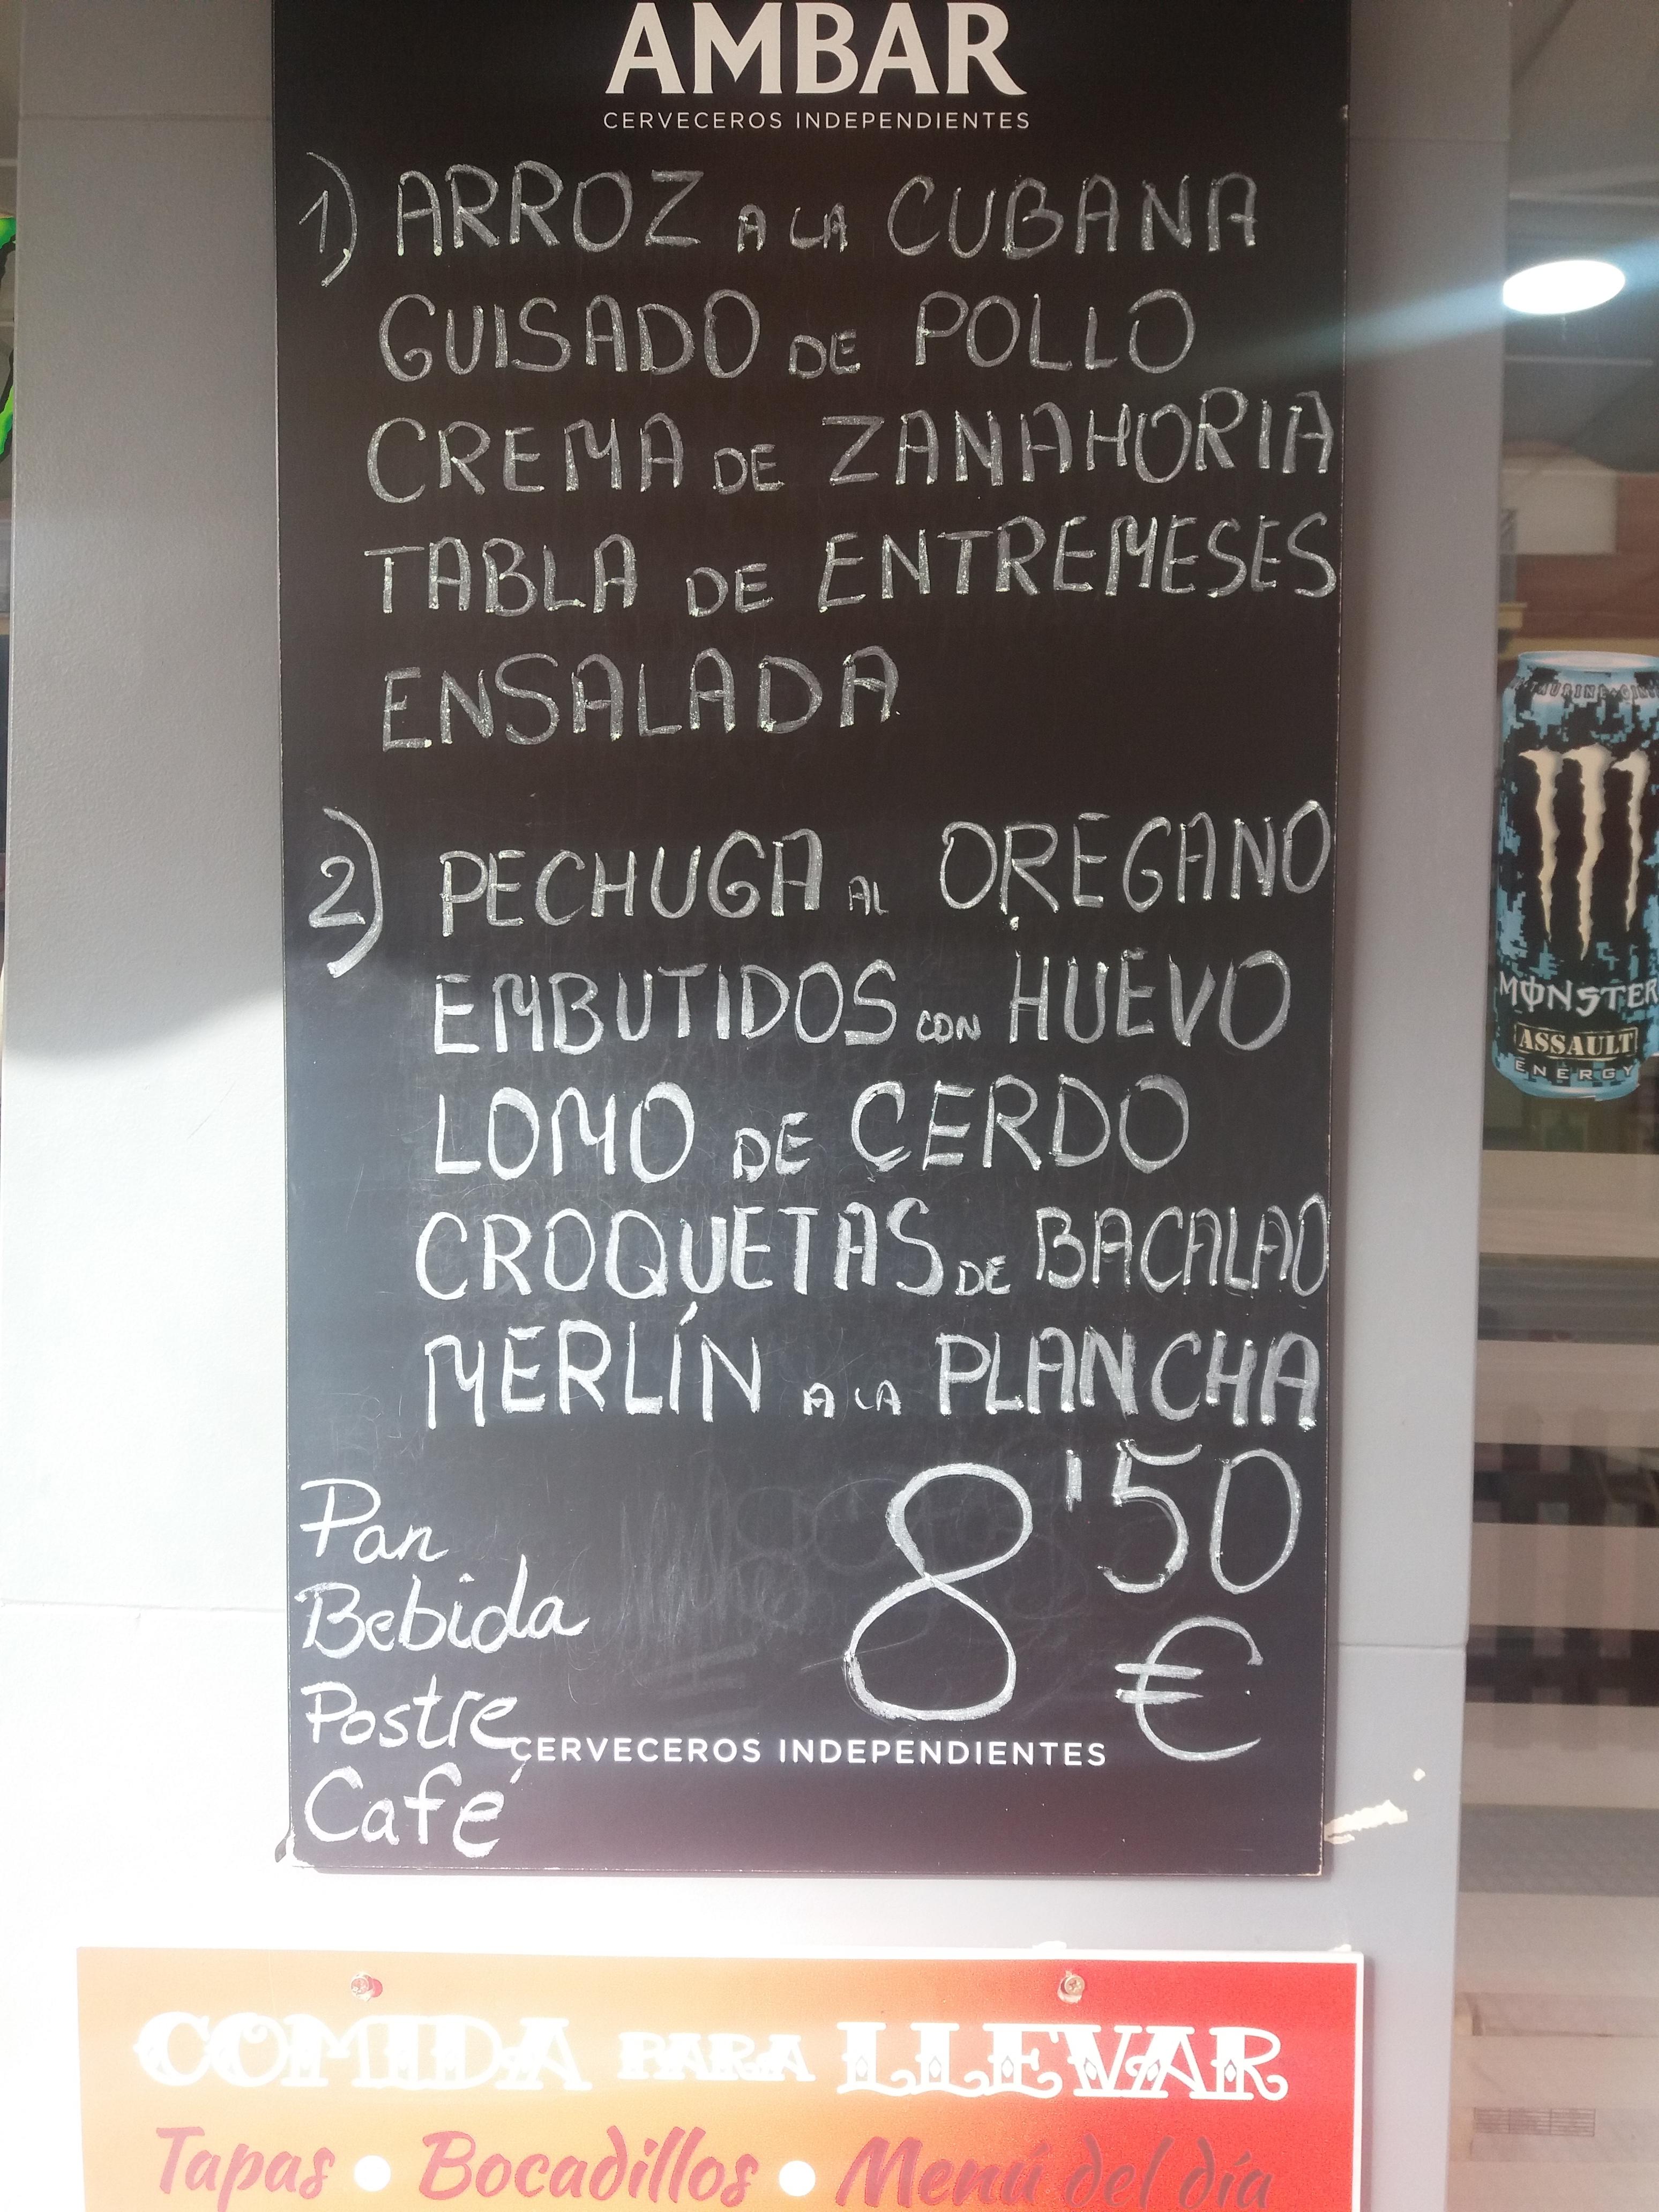 AMBAR
CERVECEROS INDEPENDIENTES
1) ARROZ A LA CUBANA
GUISADO DE POLLO
CREMA DE ZANAHORIA
TABLA DE ENTREMESES
ENSALADA
2) PECHUGA AL OREGANO
EMBUTIDOS CON HUEVO
LOMO DE CERDO
CROQUETAS DE BACALAO
MERLÍN A LA PLANCHA
8'50
€
Pan
Bebida
Postre
Café
CERVECEROS INDEPENDIENTES
MONSTER
ASSAULT
ENERGY
COMIDA PARA LLEVAR
Tapas • Bocadillos • Menú del día